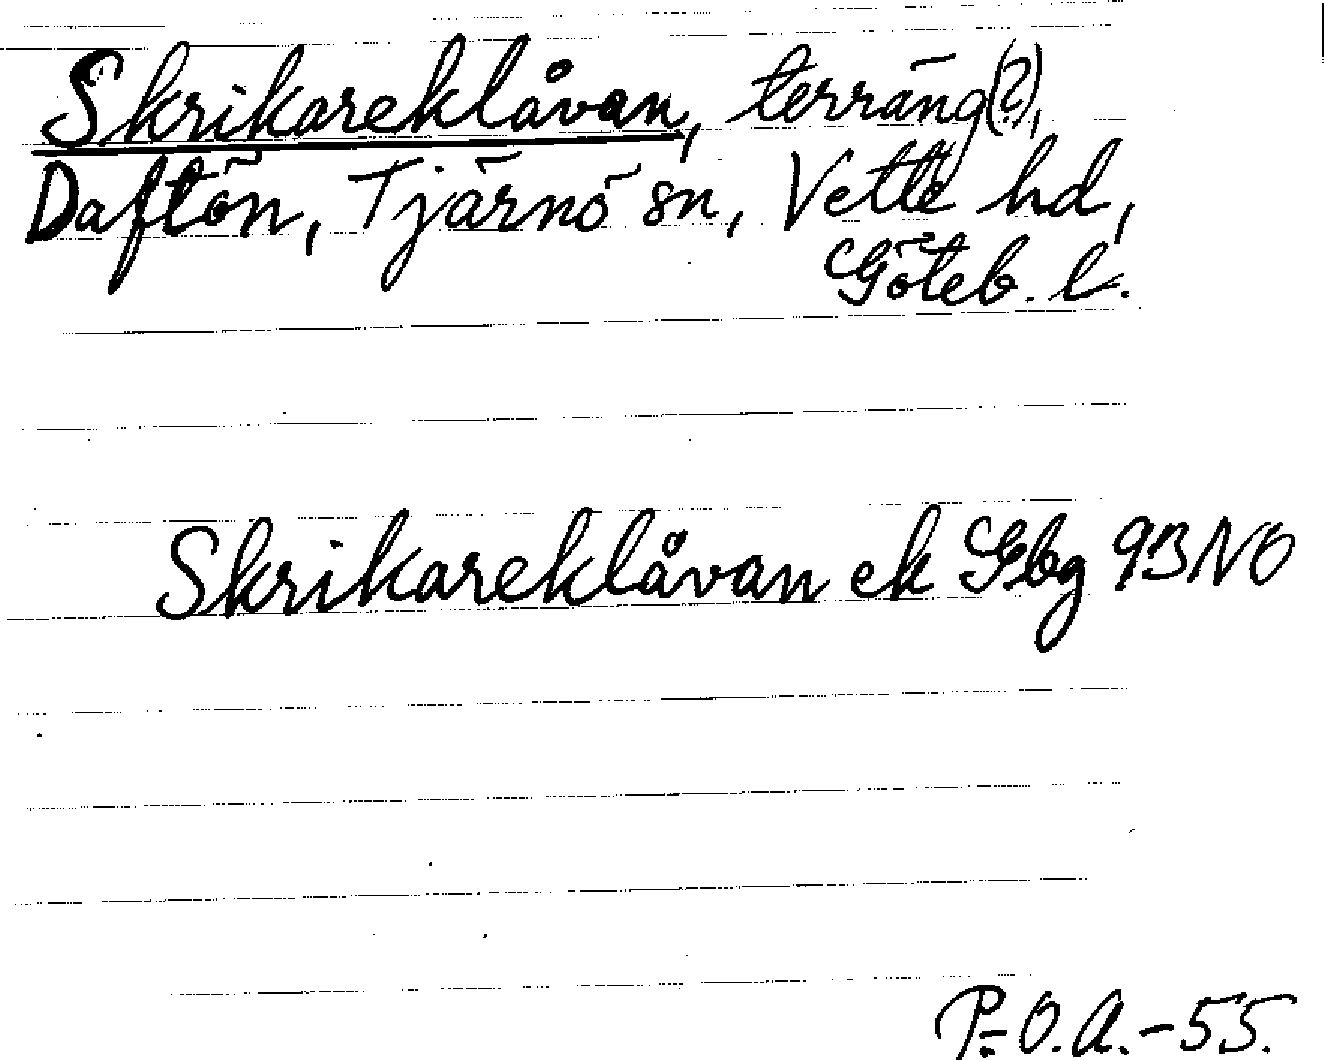 Skrikareklåvan, terräng(?),
Daftön, Tjärnö sn, Vette hd,
Göteb. l.
Skrikareklåvan ek Gbg 93NO
P.O.A.-55.